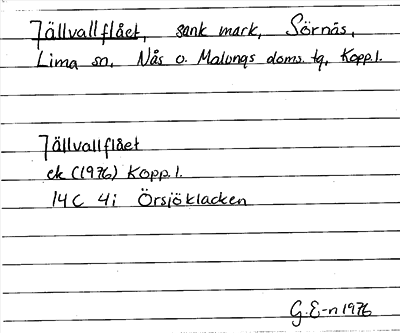 Jällvallflået, sank mark, Sörnäs,
Lima sn, Nås o. Malungs doms. tg, Kopp. l.
Jällvallflået
ek (1976) Kopp. l.
14 C 4 i Örsjöklacken
G. E-n 1976